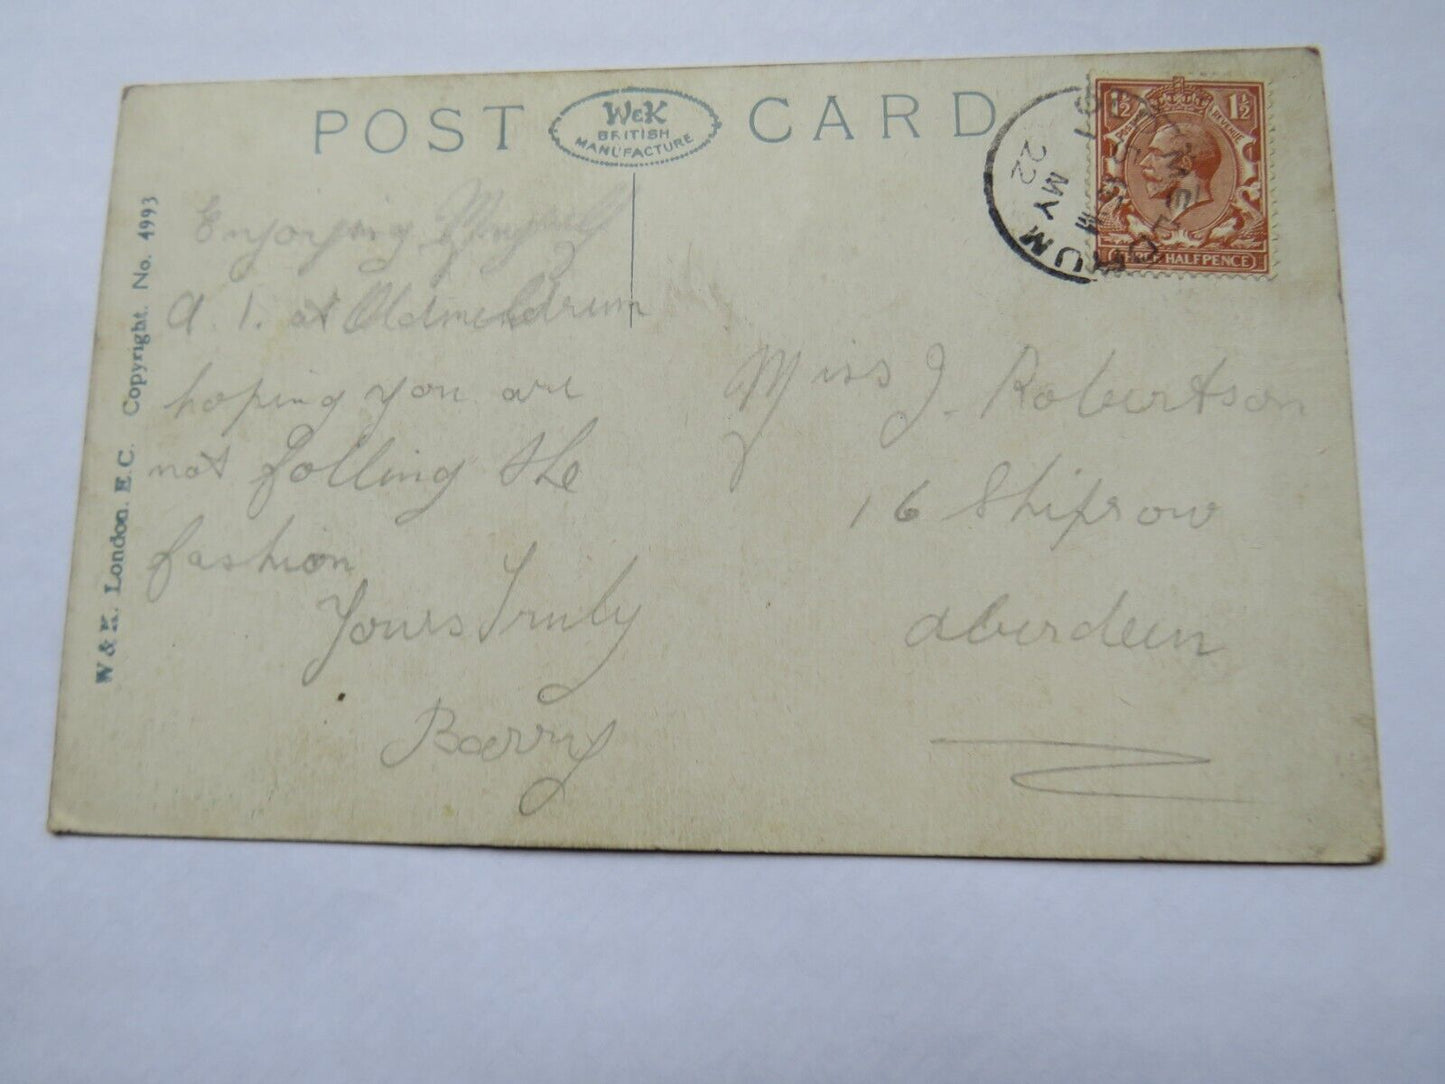 POST CARD
W&K
BRITISH
MANUFACTURE
1½ 1½
POSTAGE REVENUE
THREE HALFPENCE
22
MY
W & K. London. E.C. Copyright. No. 4993
Enjoying Myself
A. 1. at Oldmeldrum
hoping you are
not folling the
fashion
Yours Truly
Barry
Miss J. Robertson
16 Shiprow
Aberdeen